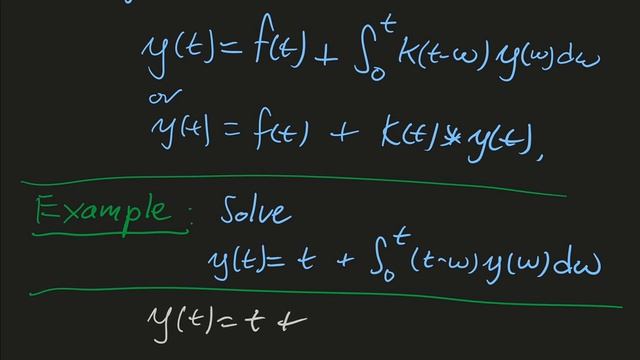 y(t) = f(t) + ∫₀ᵗ K(t-w) y(w) dw
or
y(t) = f(t) + K(t) * y(t),
Example: Solve
y(t) = t + ∫₀ᵗ (t-w) y(w) dw
y(t) = t +